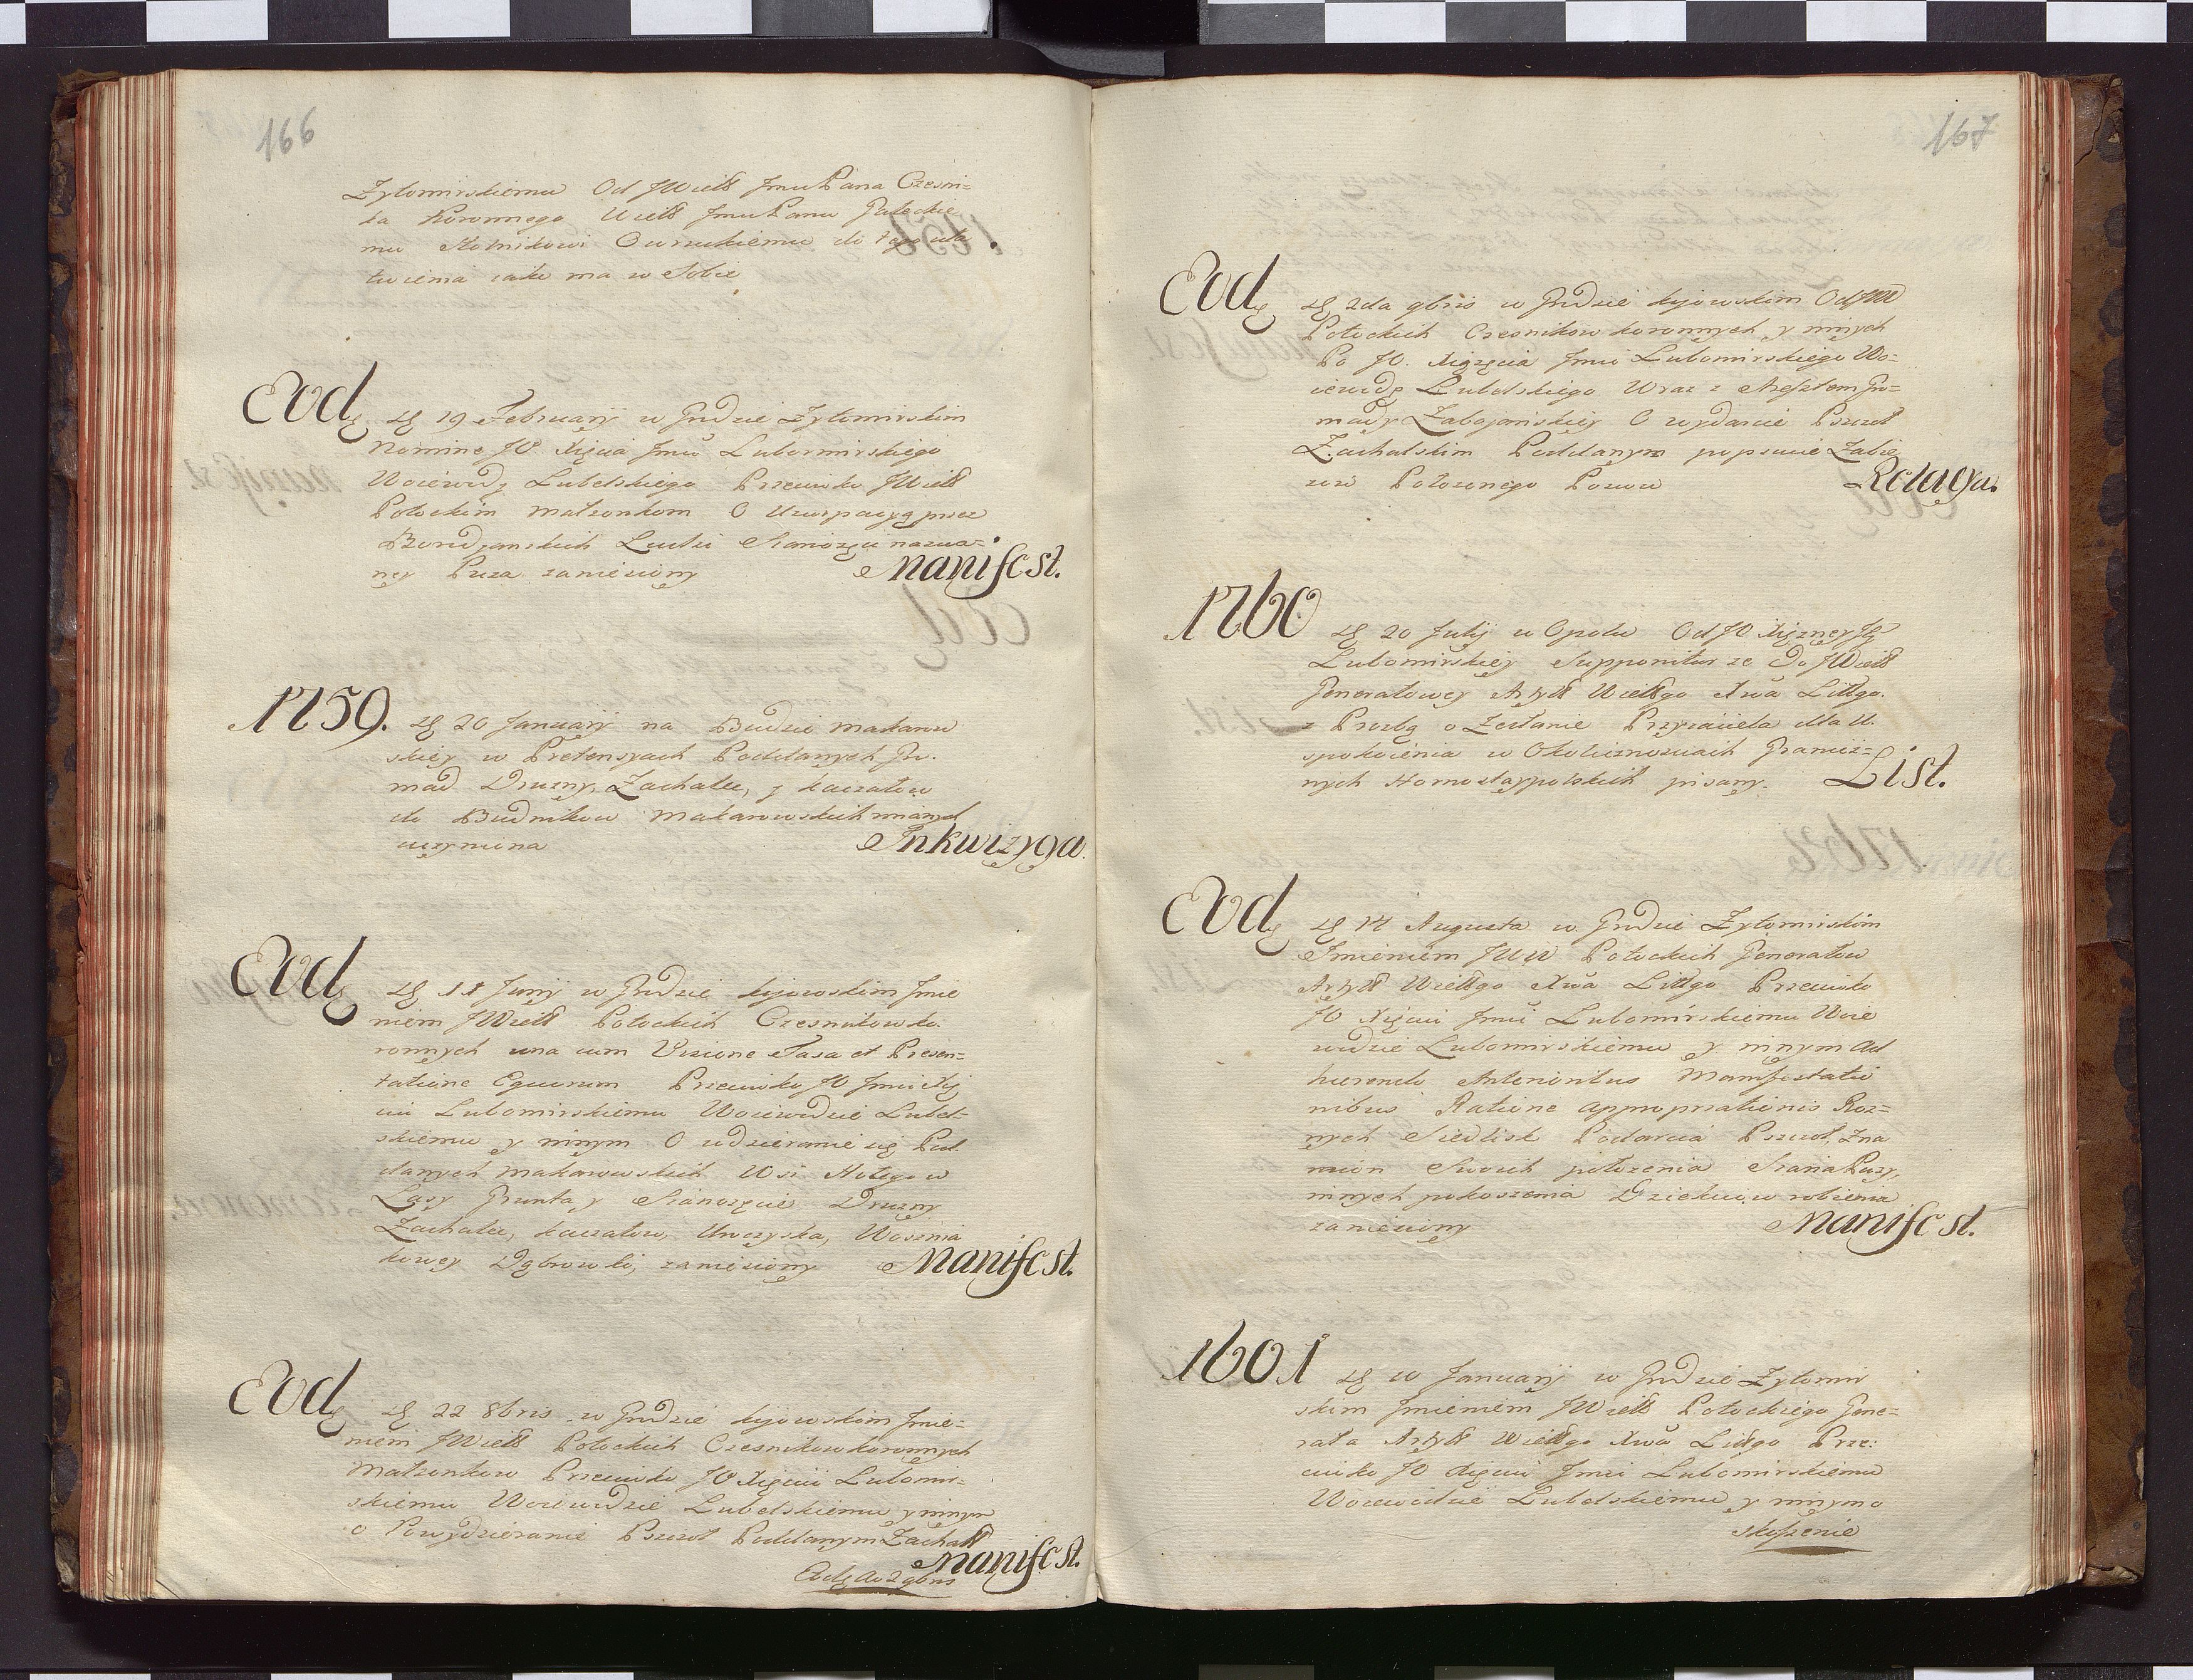 166
Zytomirskiemu Od JWielk JmuPana Czesni=
ka Koronnego Wielk JmuPanu Gałeckie
mu Owruckiemu do tego uła
twienia iakie ma w Sobie
Eod 19 Februarij w Grodzie Zytomirskim
Nomine JO Xięcia Jmci Lubomirskiego
Woiewody Lubelskiego Przeciwko JWielk
Potockim małzonkom O Uzurpacyą przez
Ludzi Sianozęci nazwa=
ney Puza zaniesiony
Manifest.
1759. 20 January na Budzie makarow
skiey w Pretensyach Poddanych Gro.
mad Druzny, Zachalec, y kaczałow
do Budnikow makarowskich mianych
uczyniona
Inkwizycya.
Eod 11 Junij w Grodzie kijowskim Jmie
niem JWielk Potockich Czesnikow ko.
ronnych una cum Visione et Presen=
tatione Equorum Przeciwko JO Jmci Xię
ciu Lubomirskiemu Woiewodzie Lubel=
skiemu y innym O wdzieranie się Pod.
danych makarowskich Wsi w
Lasy Grunta y Sianozęcie Druzny
Zachalec, kaczałow,
Dąbrowki, zaniesiony
Manifest.
Eod 22 8bris w Grodzie kijowskim Jmie=
niem JWielk Potockich Czesnikow koronnych
Małzonkow Przeciwko JO Xięciu Lubomir=
skiemu Woiewodzie Lubelskiemu y innym
o Powydzieranie Pszczoł Poddanym Zachalk
Manifest.
Eod 2 9bris
167
Eod 2da 9bris w Grodzie kijowskim Od JWW
Potockich Czesnikow koronnych y innych
Po JO. Xiązęcia Jmci Lubomirskiego Wo=
iewodę Lubelskiego Wraz z Gro=
mady Zabojanskiey O wydarcie Pszczoł
Zachalskim Poddanym popsucie
Połozonego Pozwu
Relacya.
1760 20 Julij w Opolu Od JO Xięzney Jey
Lubomirskiey Supponitur ze do JWielk
Generałowey Artylk Wielkgo Xwa Littgo.
z Prozbą o Zesłanie Przyiaciela dla U.
spokoienia w Okolicznosciach Granicz=
nych Hornostaypolskich pisany.
List.
Eod 14 Augusta w Grodzie Zytomirskim
Jmieniem JWW Potockich Generałow
Artylk Wielkgo Xwa Littgo Przeciwko
JO Xięciu Jmci Lubomirskiemu Woie
wodzie Lubomirskiemu y innym ad
haerendo Anterioribus Manifestatio
nibus Ratione appropriationis Roz=
nych Siedlisk Podarcia Pszczoł, Zna
mion Swoich połozenia Siana Puzy,
innych pokoszenia robienia
zaniesiony
Manifest.
1601 Januarij w Grodzie Zytomir
skim Jmieniem JWielk Potockiego Gene=
rała Artylk Wielkgo Xwa Littgo Prze:
ciwko JO Xięciu Jmci Lubomirskiemu
Woiewodzie Lubelskiemu y innym o
skoszenie